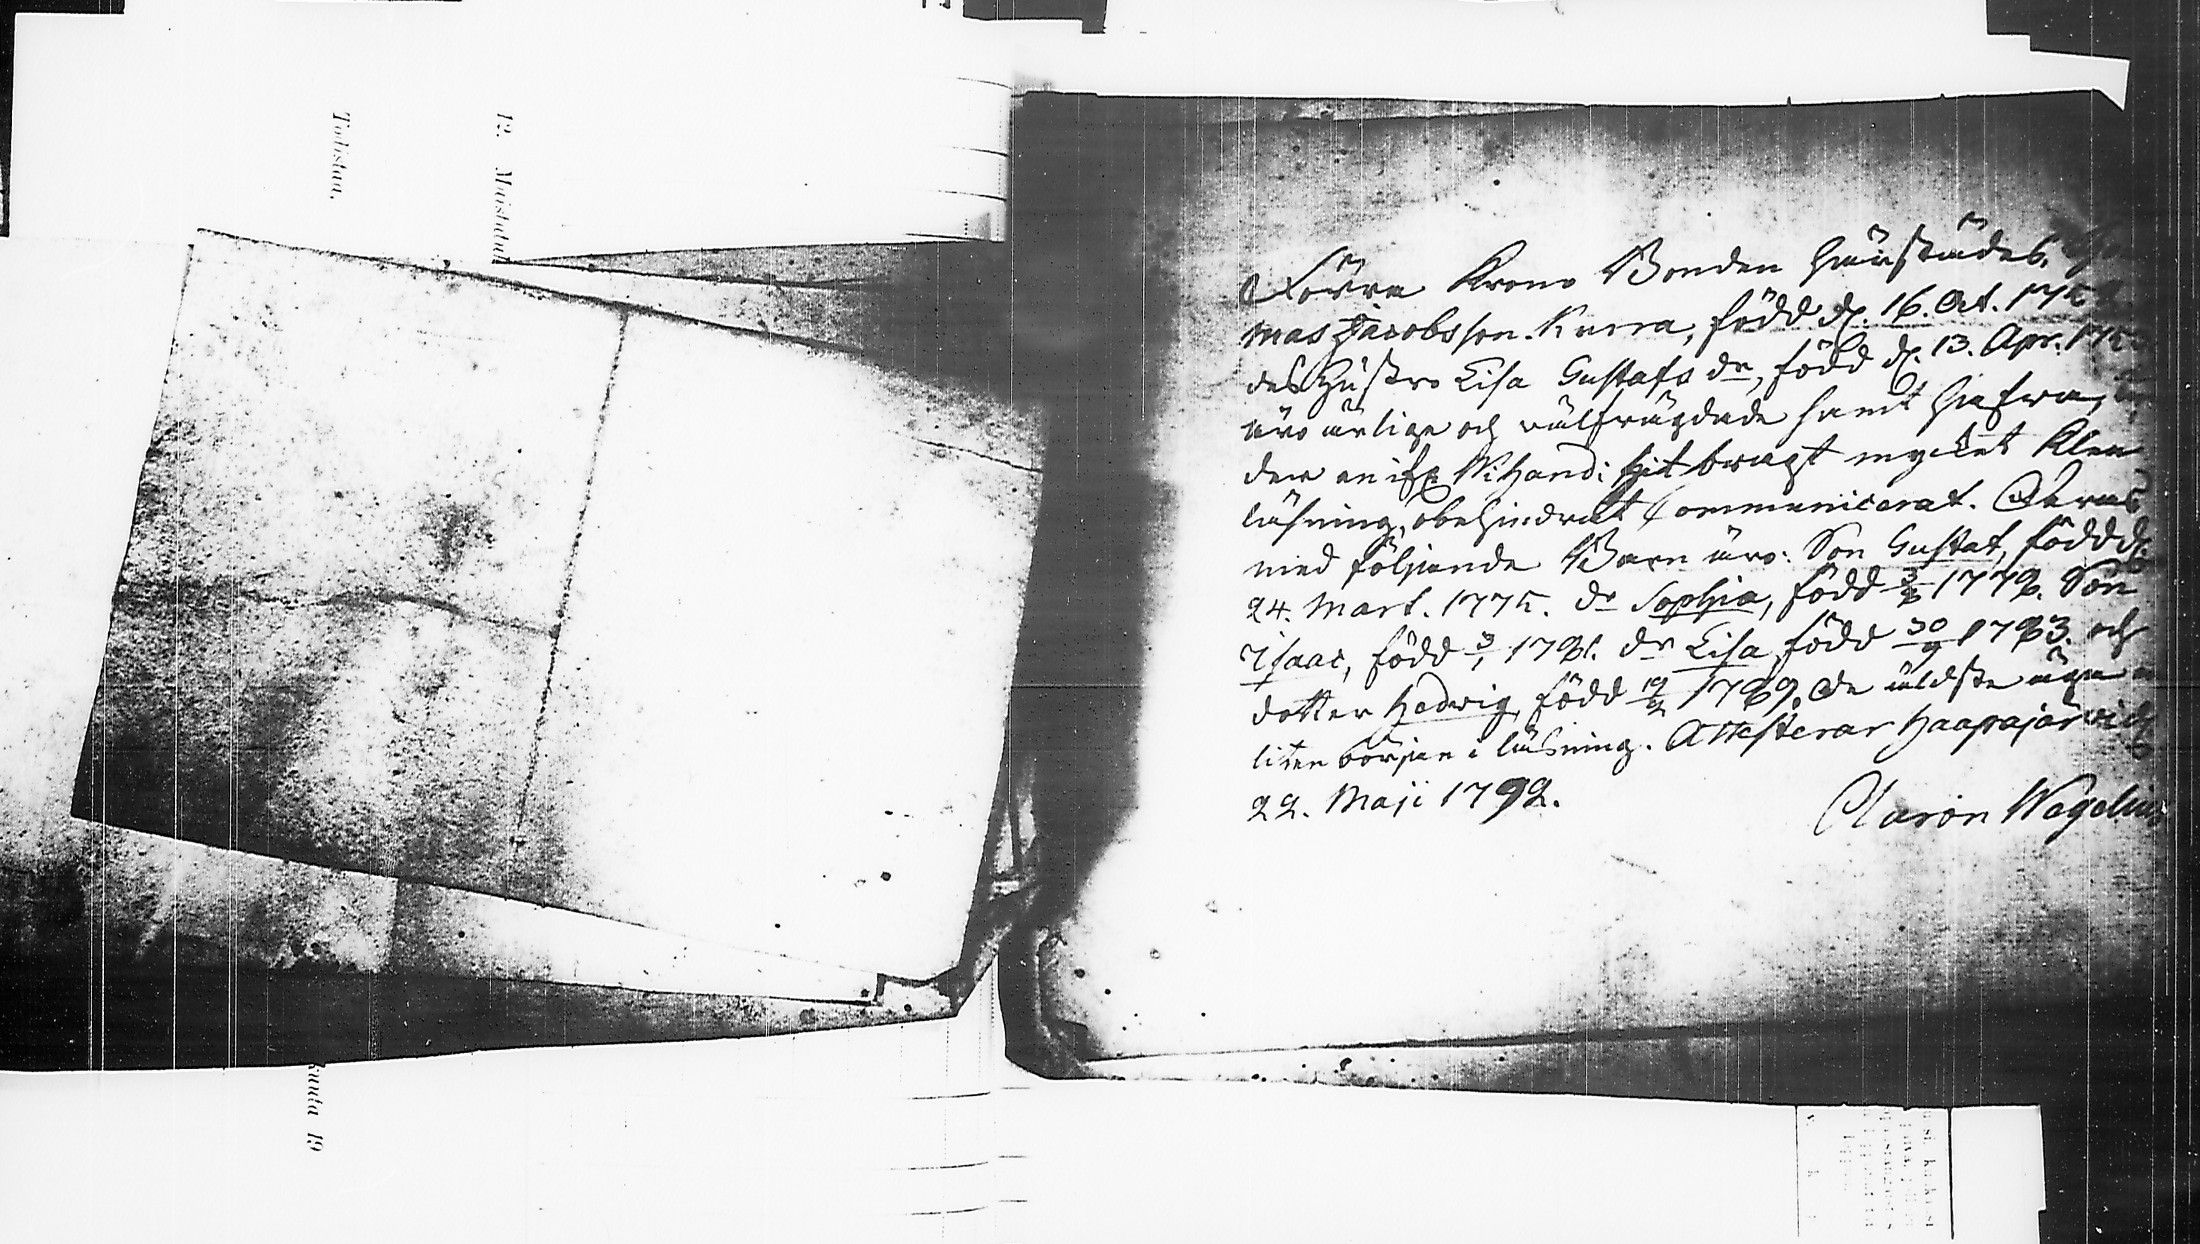 Todistaa,
12. Maistuduk
kunta 19
Förra Krono Bonden härstädes,
mas Jacobsson Kurra, född d. 16. Oct. 175
des Hustro Lisa Gustafs dr, född d. 13. Apr. 175
äro ärlige och välfrägdade samt hafva,
hitbragt mycket klen
läsning, obehindrat Communicerat. Deras
med följande Barn äro: Son Gustaf, född d.
24. Mart. 1775. dr Sophia, född 1778. Son
Isaac, född 3/1 1781. dr Lisa, född 30/9 1783. och
dotter Hedvig, född 19/2 1789. De äldste äga
liten början i läsning. Attesterar Haapajärvi d.
22. Maji 1792.
Aaron Wegelius